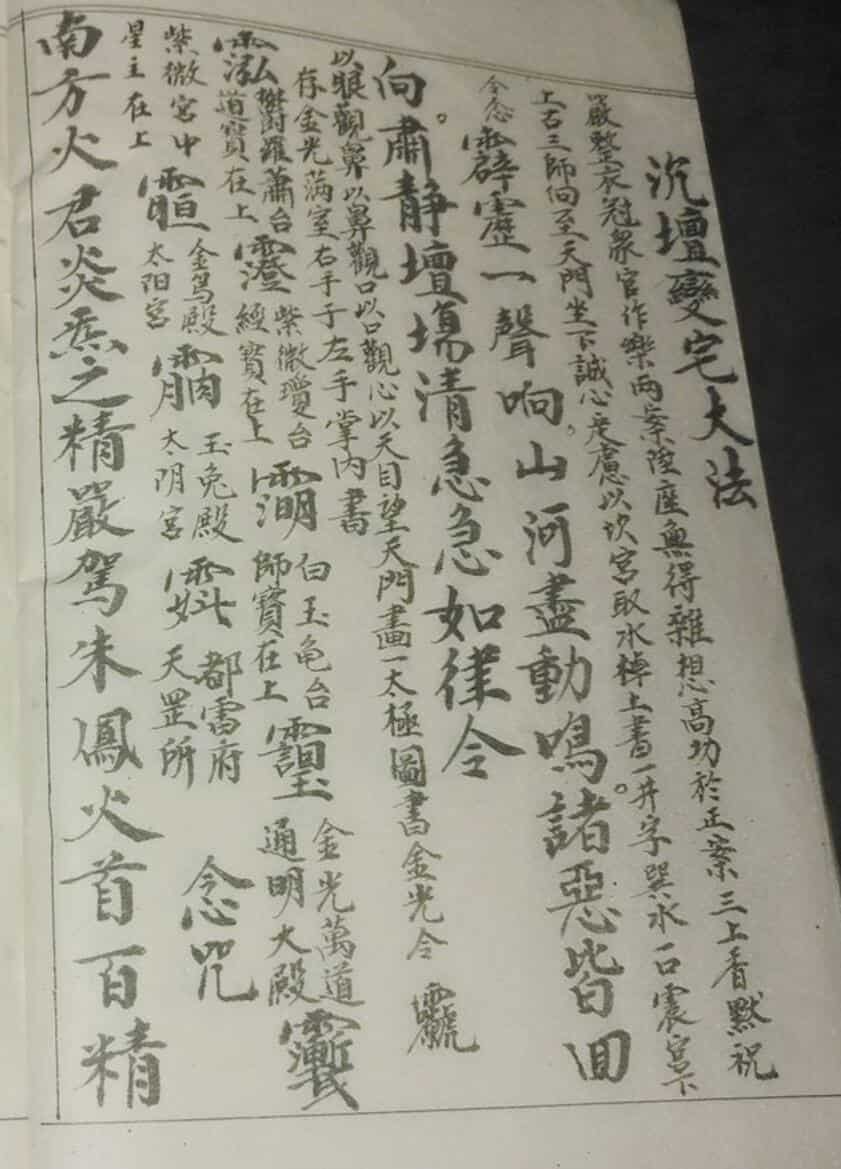 沉壇變宅大法
嚴整衣冠衆官作樂兩案陞座無得雜想高功於正案三上香默祝
上古三師伺至天門坐下誠心定慮以坎宮取水棹上書一井字巽水一口震宮下
令念霹靂一聲响。山河盡動鳴。諸惡皆回
向。肅靜壇場清急急如律令
以眼觀鼻以鼻觀口以口觀心以天目望天門畫一太極圖書金光令
存金光满室右手于左手掌内書
鬱羅蕭台道寶在上 紫微瓊台經寶在上 白玉龟台師寶在上 金光萬道通明大殿
紫微宮中星主在上 金烏殿太阳宮 玉兔殿太阴宮 都雷府天罡所 念咒
南方火君炎炁之精嚴駕朱鳳火首百精